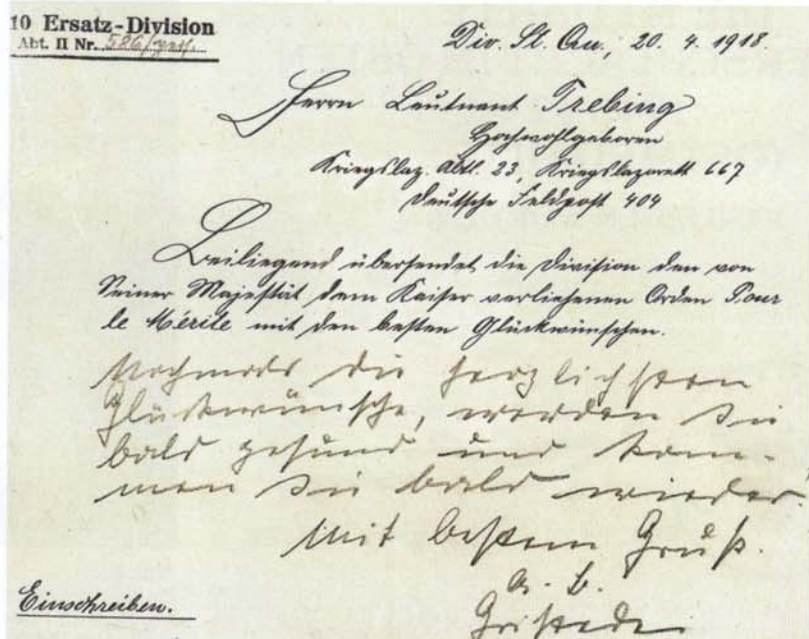 10 Ersatz-Division
Abt. II Nr. 586/pers.
Div. St. Qu., 20. 4. 1918.
Herrn Leutnant Trebing
Hochwohlgeboren
Kriegslaz. Abtl. 23, Kriegslazarett 667
Deutsche Feldpost 404
Beiliegend übersendet die Division den von
Seiner Majestät dem Kaiser verliehenen Orden Pour
le Mérite mit den besten Glückwünschen.
Nochmals die herzlichsten
Glückwünsche, werden Sie
bald gesund und kom-
men Sie bald wieder.
Mit bestem Gruß.
Einschreiben.